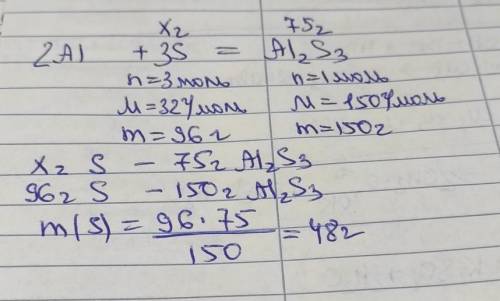 x г 75 г
2Al + 3S = Al₂S₃
n=3 моль n=1 моль
M=32 г/моль M=150 г/моль
m=96 г m=150 г
x г S – 75 г Al₂S₃
96 г S – 150 г Al₂S₃
m(S) = 96·75 / 150 = 48 г